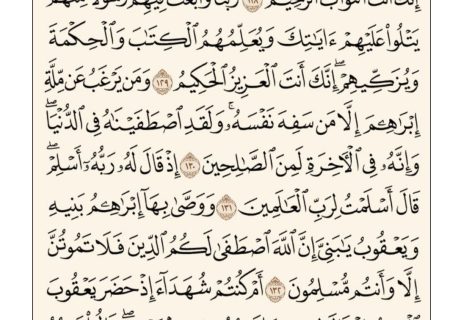 إِنَّكَ أَنتَ ٱلتَّوَّابُ ٱلرَّحِيمُ ١٢٨ رَبَّنَا وَٱبْعَثْ فِيهِمْ رَسُولًا مِّنْهُمْ
يَتْلُوا۟ عَلَيْهِمْ ءَايَـٰتِكَ وَيُعَلِّمُهُمُ ٱلْكِتَـٰبَ وَٱلْحِكْمَةَ
وَيُزَكِّيهِمْ ۚ إِنَّكَ أَنتَ ٱلْعَزِيزُ ٱلْحَكِيمُ ١٢٩ وَمَن يَرْغَبُ عَن مِّلَّةِ
إِبْرَٰهِـۧمَ إِلَّا مَن سَفِهَ نَفْسَهُۥ ۚ وَلَقَدِ ٱصْطَفَيْنَـٰهُ فِى ٱلدُّنْيَا ۖ
وَإِنَّهُۥ فِى ٱلْـَٔاخِرَةِ لَمِنَ ٱلصَّـٰلِحِينَ ١٣٠ إِذْ قَالَ لَهُۥ رَبُّهُۥٓ أَسْلِمْ ۖ
قَالَ أَسْلَمْتُ لِرَبِّ ٱلْعَـٰلَمِينَ ١٣١ وَوَصَّىٰ بِهَآ إِبْرَٰهِـۧمُ بَنِيهِ
وَيَعْقُوبُ يَـٰبَنِىَّ إِنَّ ٱللَّهَ ٱصْطَفَىٰ لَكُمُ ٱلدِّينَ فَلَا تَمُوتُنَّ
إِلَّا وَأَنتُم مُّسْلِمُونَ ١٣٢ أَمْ كُنتُمْ شُهَدَآءَ إِذْ حَضَرَ يَعْقُوبَ